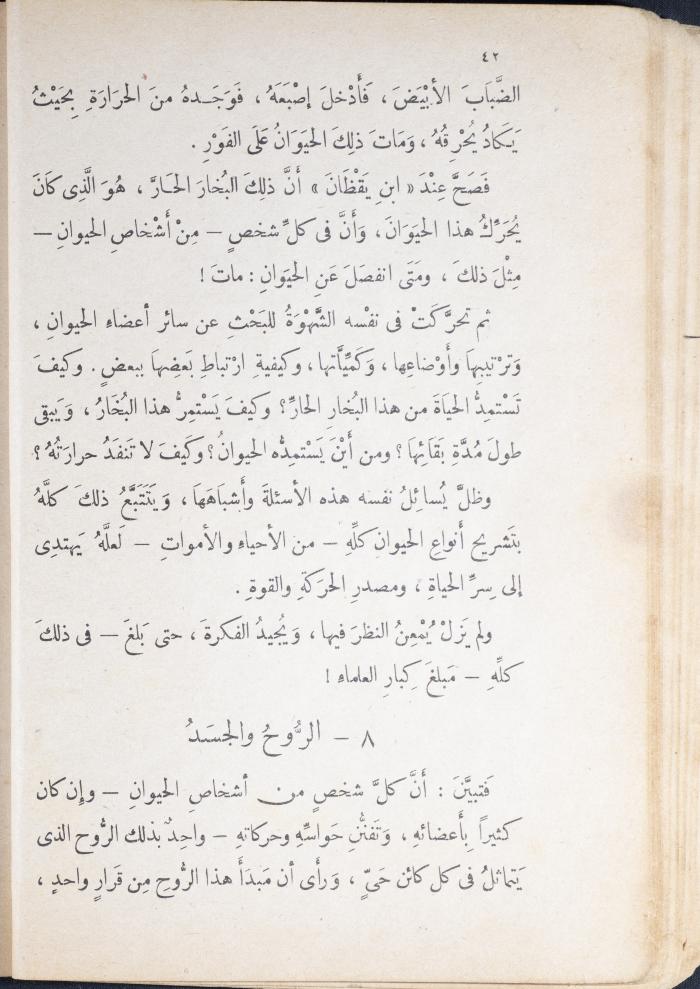 ٤٢
الضَّبَابَ الأَبْيَضَ، فَأَدْخلَ إصْبَعَهُ، فَوَجَـدهُ منَ الحَرَارَةِ بِحَيْثُ
يَـكَادُ يُحْرِقُهُ، وَمَاتَ ذلِكَ الحَيَوَانُ عَلَى الفَوْرِ.
فَصَحَّ عِنْدَ «ابنِ يَقْظَانَ» أَنَّ ذلِكَ البُخارَ الحَـارَّ، هُوَ الَّذِى كَانَ
يُحَرِّكُ هذا الحيَوَانَ، وَأَنَّ فى كلِّ شخصٍ – مِنْ أَشْخاصِ الحيوانِ –
مِثْلَ ذلكَ، ومَتَى انفصَلَ عَنِ الحيَوانِ: ماتَ!
ثم تحرَّكَتْ فى نفْسه الشَّهْوَةُ للبَحْثِ عن سائر أعضاءِ الحيوانِ،
وَترْتيبِهَا وأَوْضاعِها، وَكَمِّيَّاتها، وكيفيةِ ارْتباطِ بَعضِهَا ببعضٍ. وكيفَ
تَسْتمِدُّ الحيَاةَ من هذا البُخار الحارِّ؟ وكيفَ يَسْتمِرُّ هذا البُخَارُ، وَيَبقى
طولَ مُدَّةِ بَقَائِهَا؟ ومن أَيْنَ يَسْتمِدُّه الحيوانُ؟ وكَيفَ لا تَنفَدُ حرارَتُهُ؟
وظلَّ يُسائِلُ نفسَه هذه الأسئلةَ وأَشباهَهَا، وَيَتَتَبَّعُ ذلكَ كلَّهُ
بتَشريحِ أَنواعِ الحيوانِ كلِّهِ – من الأحياءِ والأمواتِ – لَعلَّهُ يَهتدِى
إلى سِرِّ الحياةِ، ومصدرِ الحرَكةِ والقوةِ.
ولم يَزَلْ يُمْعِنُ النظَرَ فيها، وَيُجِيدُ الفكرةَ، حتى بَلغَ – فى ذلكَ
كلِّهِ – مَبلغَ كِبارِ العلماءِ!
٨ – الرُّوحُ والجسَدُ
فَتبيَّنَ: أَنَّ كلَّ شخصٍ من أشخاصِ الحيوانِ – وإن كان
كثيراً بأَعضائهِ، وَتَفنُّنِ حَواسِّهِ وحركاتهِ – واحِدٌ بذلك الرُّوح الذى
يَتماثلُ فى كل كائن حَىٍّ، وَرأى أن مَبدَأَ هذا الرُّوحِ مِن قَرارٍ واحدٍ،